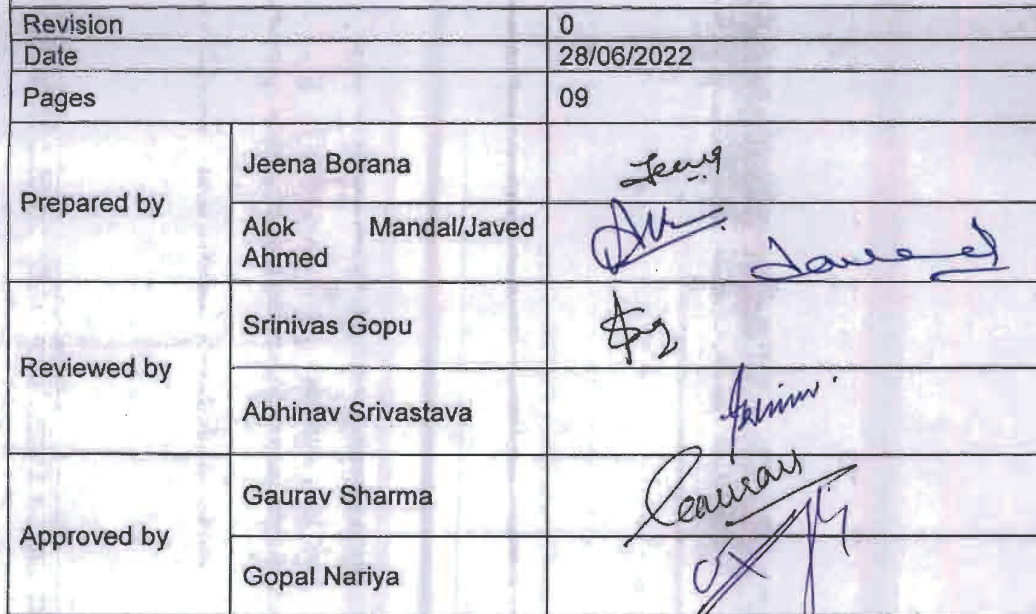 Revision 0
Date 28/06/2022
Pages 09
Prepared by
Jeena Borana
Alok Mandal/Javed
Ahmed
Reviewed by
Srinivas Gopu
Abhinav Srivastava
Approved by
Gaurav Sharma
Gopal Nariya